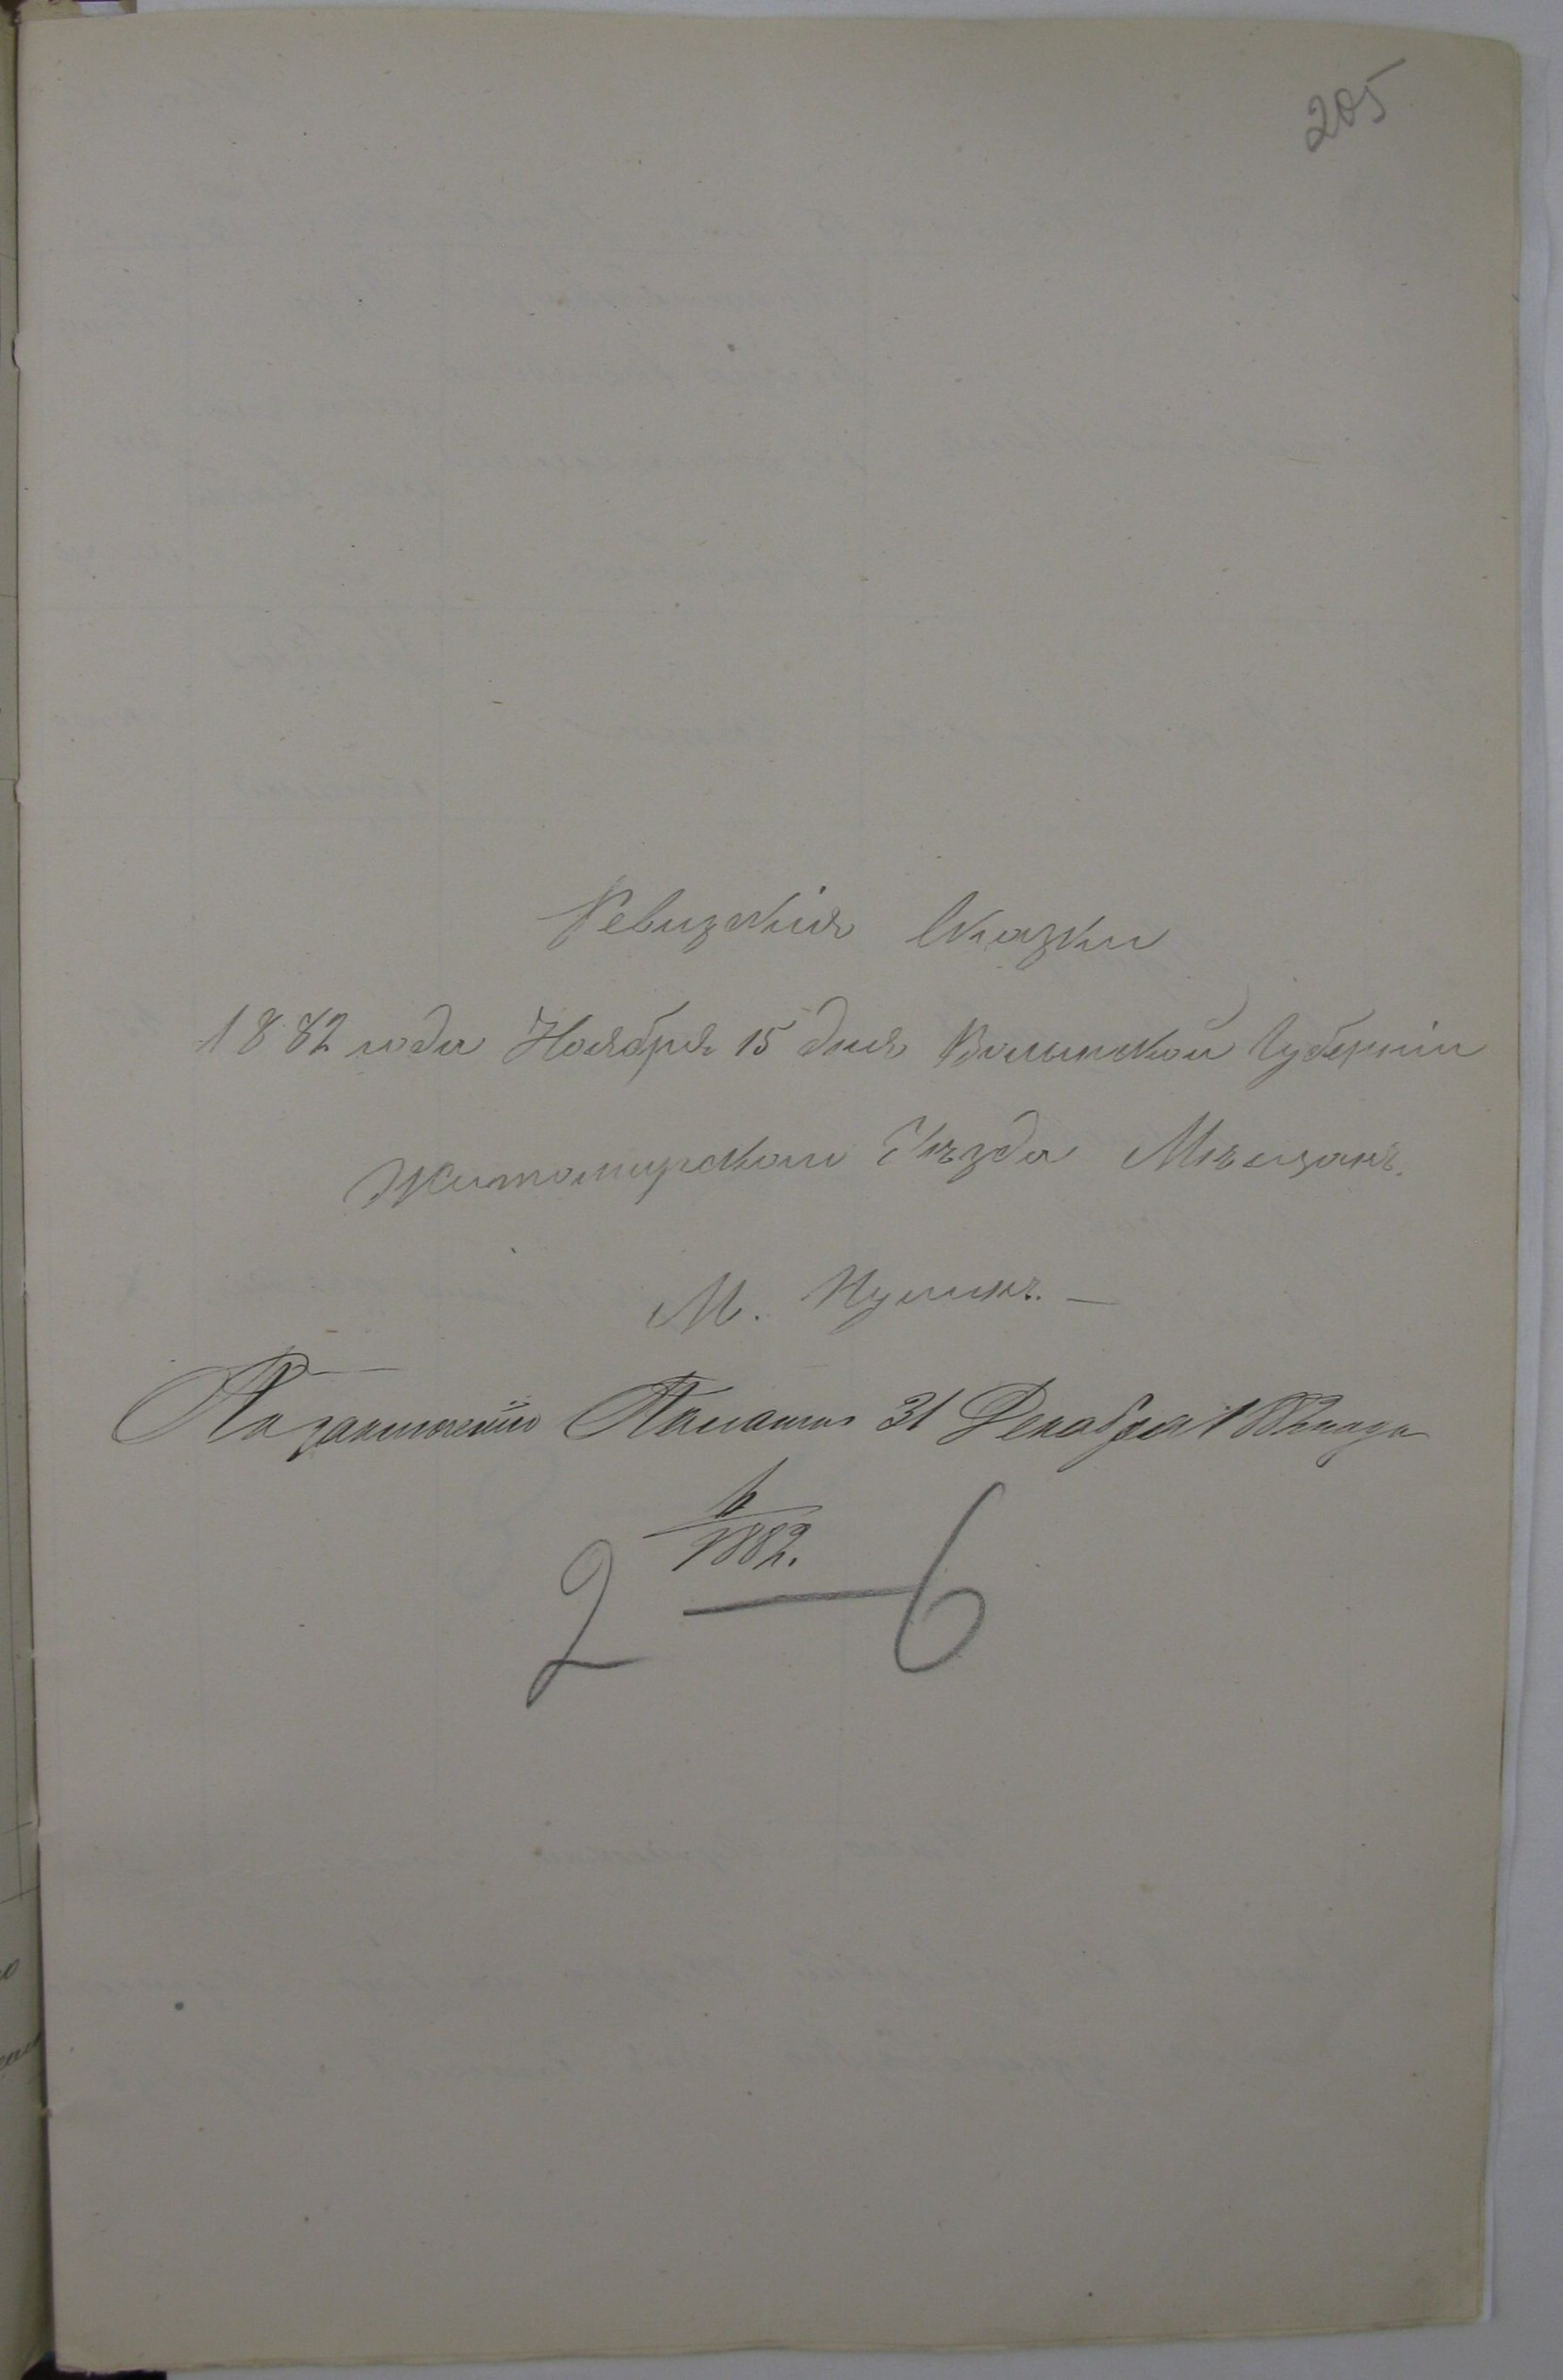 205
Ревизскія Сказки
1882 года Ноября 15 дня Волынской Губерніи
Житомирскаго Уѣзда Мѣщанъ.
М. Пулинъ. —
По заключенію Палаты 31 Декабря 1882 года
1882.
2 — 6